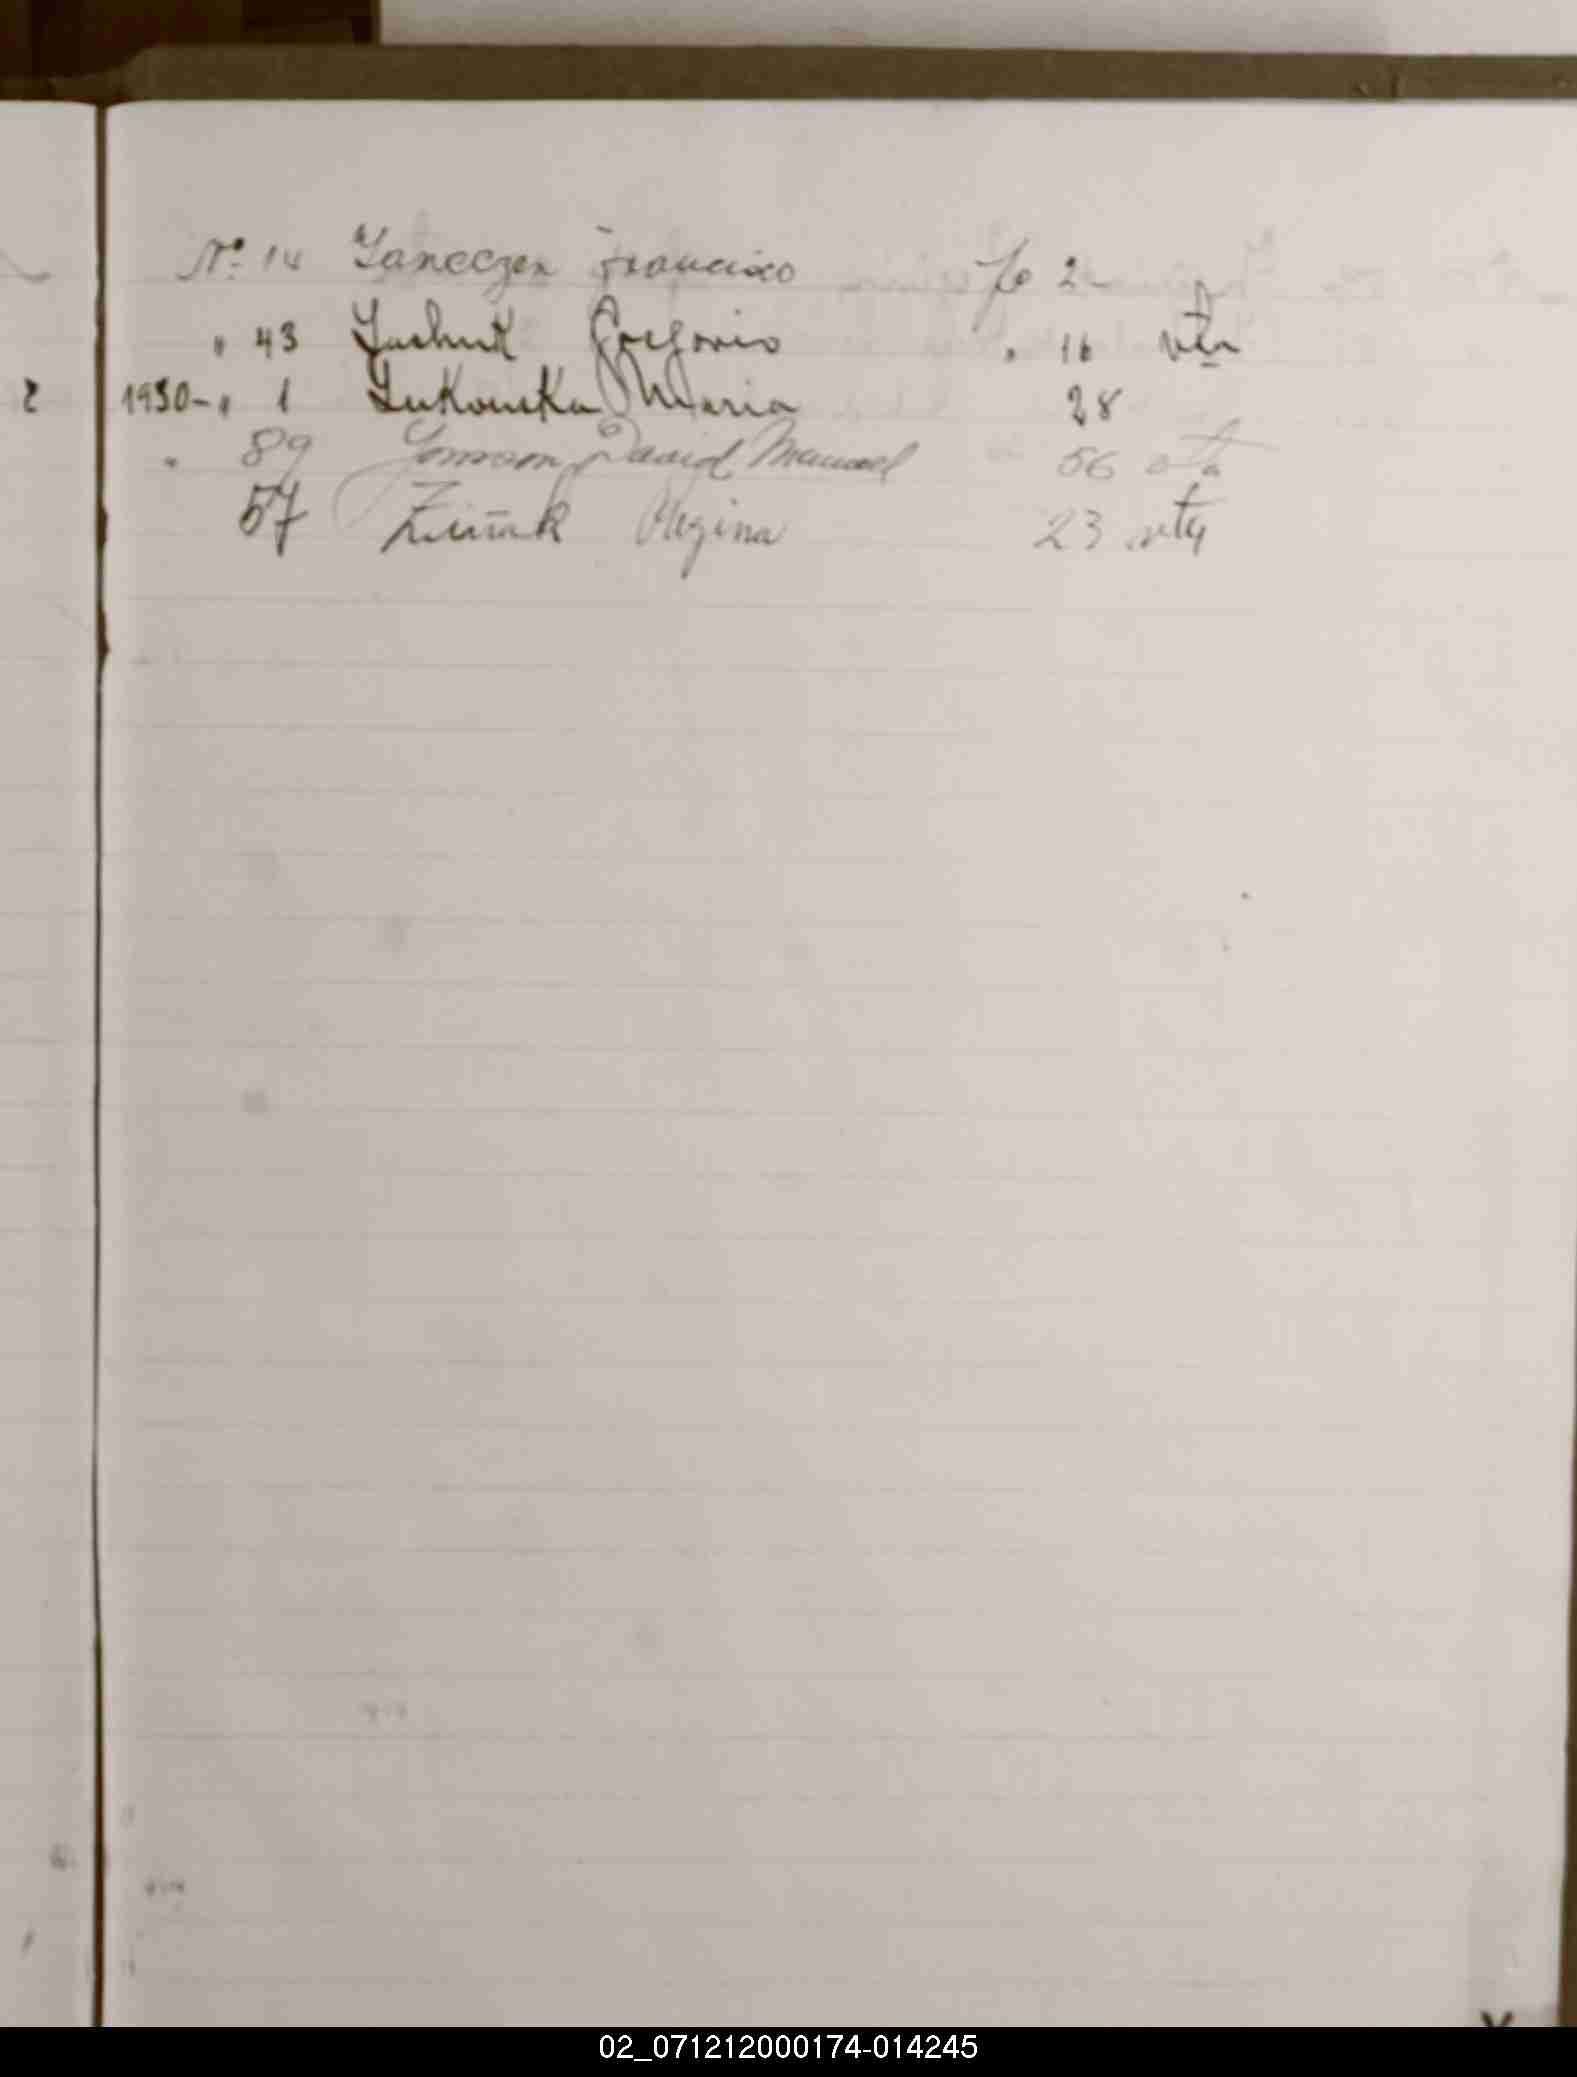 Nº 14 Janeczen Francisco fo 2
" 43 Gregorio " 16 vta
1930 - " 1 Zukouska Maria 28
" 89 David Manuel 56 vta
57 Regina 23 vta
02_071212000174-014245